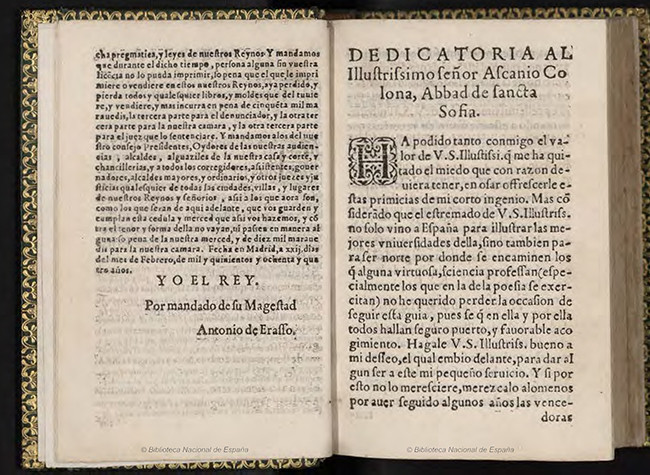 cha pregmatica, y leyes de nueſtros Reynos. Y mandamos
que durante el dicho tiempo, perſona alguna ſin vueſtra
licẽcia no lo pueda imprimir, ſo pena que el que le impri
miere o vendiere en eſtos nueſtros Reynos, aya perdido, y
pierda todos y qualeſquier libros, y moldes que del tuuie
re, y vendiere, y mas incurra en pena de cinquẽta mil ma
rauedis, la tercera parte para el denunciador, y la otra ter
cera parte para la nueſtra camara, y la otra tercera parte
para el juez que lo ſentenciare. Y mandamos a los del nue
ſtro conſejo Preſidentes, Oydores de las nueſtras audien-
cias, alcaldes, alguaziles de la nueſtra caſa y corte, y
chancillerias, y a todos los corregidores, aſsiſtentes, gouer
nadores, alcaldes mayores, y ordinarios, y otros juezes y ju
ſticias qualeſquier de todas las ciudades, villas, y lugares
de nueſtros Reynos y ſeñorios, aſsi a los que aora ſon,
como los que ſeran de aqui adelante, que vos guarden y
cumplan eſta cedula y merced que aſsi vos hazemos, y cõ
tra el tenor y forma della no vayan, ni paſſen en manera al
guna ſo pena de la nueſtra merced, y de diez mil maraue
dis para la nueſtra camara. Fecha en Madrid, a xxij. dias
del mes de Febrero, de mil y quinientos y ochenta y qua
tro años.
YO EL REY.
Por mandado de ſu Mageſtad
Antonio de Eraſſo.
© Biblioteca Nacional de España
DEDICATORIA AL
Illuſtriſsimo ſeñor Aſcanio Co
lona, Abbad de ſancta
Sofia.
HA podido tanto conmigo el va-
lor de V.S.Illuſtiſsi. q̃ me ha qui-
tado el miedo que con razon de-
uiera tener, en oſar offreſcerle e-
ſtas primicias de mi corto ingenio. Mas cõ
ſiderado que el eſtremado de V.S.Illuſtriſs.
no ſolo vino a Eſpaña para illuſtrar las me-
jores vniuerſidades della, ſino tambien pa-
ra ſer norte por donde ſe encaminen los
q̃ alguna virtuoſa, ſciencia profeſſan (eſpe-
cialmente los que en la de la poeſia ſe exer-
citan) no he querido perder la occaſion de
ſeguir eſta guia, pues ſe q̃ en ella y por ella
todos hallan ſeguro puerto, y fauorable aco
gimiento. Hagale V.S.Illuſtriſs. bueno a
mi deſſeo, el qual embio delante, para dar al
gun ſer a eſte mi pequeño ſeruicio. Y ſi por
eſto no lo mereſciere, merezcalo alomenos
por auer ſeguido algunos años las vence-
doras
© Biblioteca Nacional de España